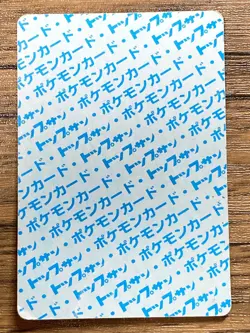 トップサン・ポケモンカード・
ポケモンカード・トップサン・
トップサン・ポケモンカード・
ポケモンカード・トップサン・
トップサン・ポケモンカード・
ポケモンカード・トップサン・
トップサン・ポケモンカード・
ポケモンカード・トップサン・
トップサン・ポケモンカード・
ポケモンカード・トップサン・